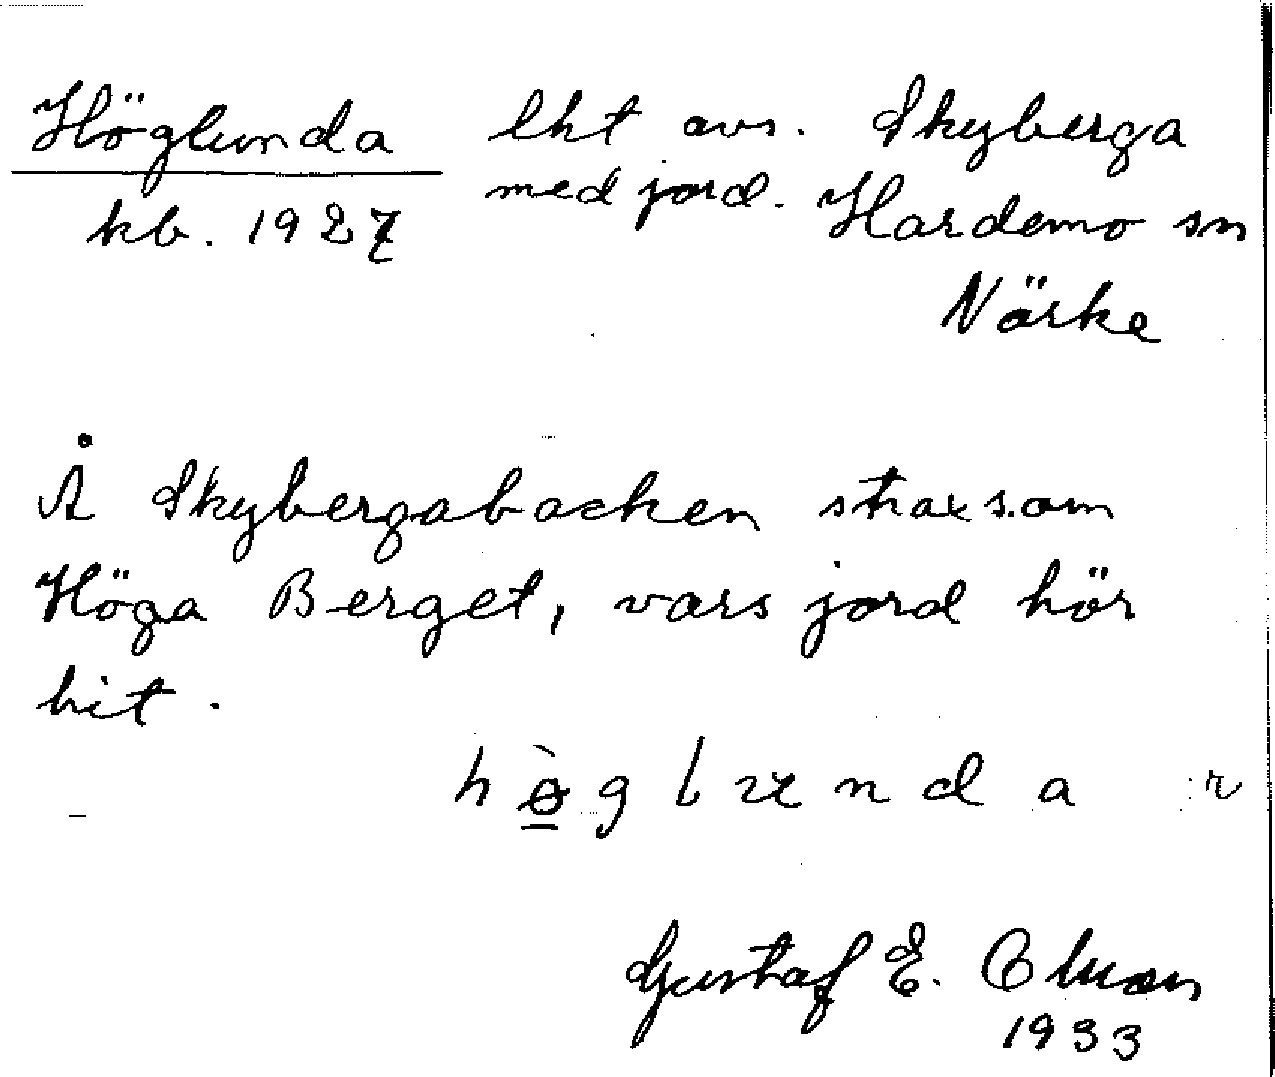 Höglunda lht avs. Skyberga
med jord. Hardemo sn
kb. 1927
Närke
Å Skybergabacken strax s.om
Höga Berget, vars jord hör
hit.
h ø̀ g l u n d a r
Gustaf E.
1933